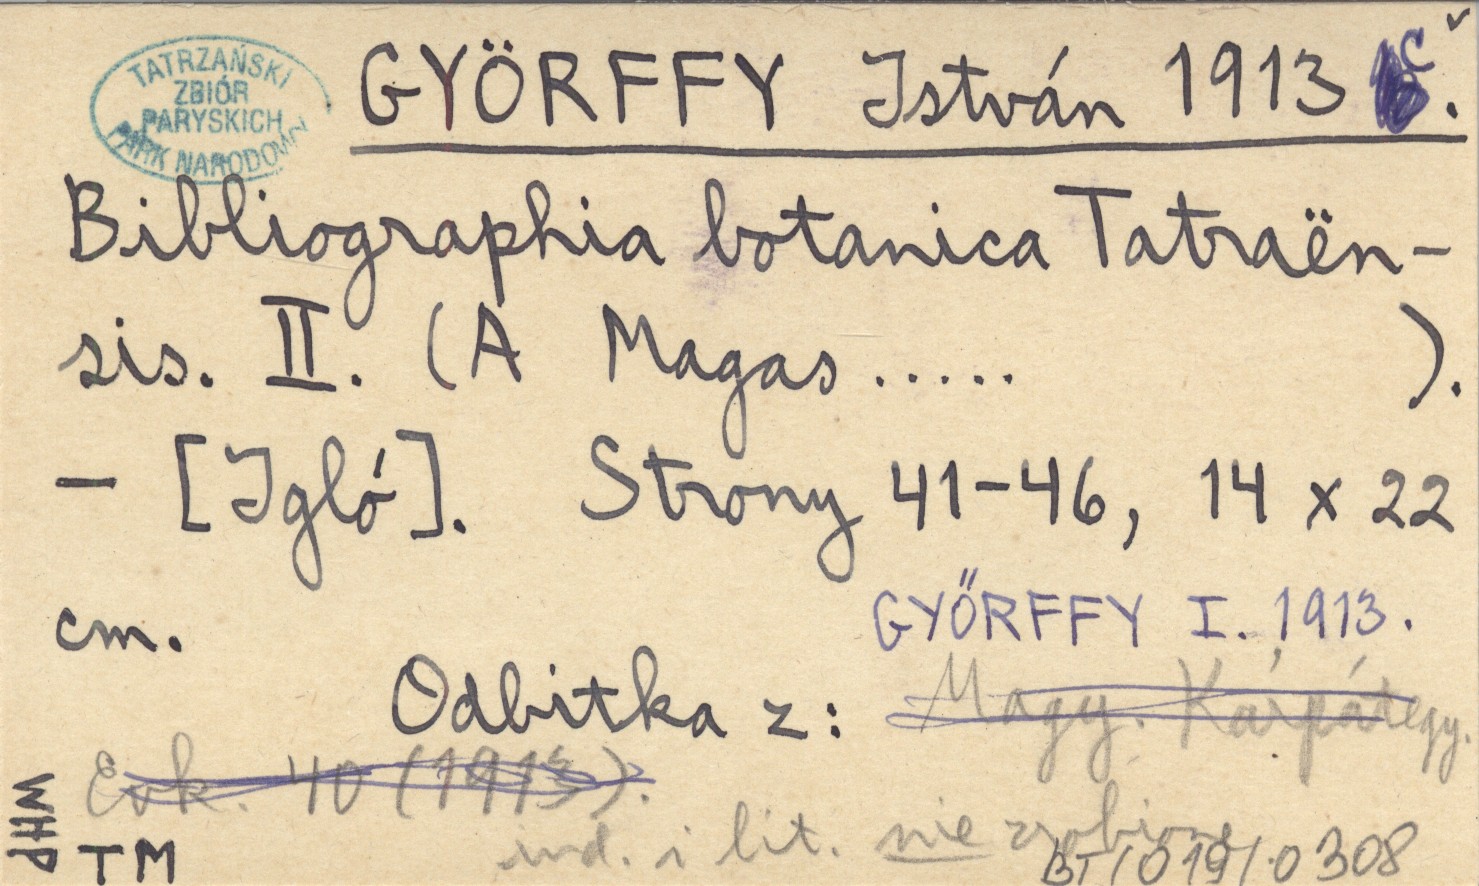 TATRZAŃSKI
ZBIÓR
PARYSKICH
PARK NARODOWY
GYÖRFFY István 1913 c.
Bibliographia botanica Tatraën-
sis. II. (A Magas ..... ).
- [Igló]. Strony 41-46, 14 x 22
cm.
GYŐRFFY I. 1913.
Odbitka z: Magy. Kárpátegy.
Évk. 40 (1913).
ind. i lit. nie zrobione
WHP
TM
BT/019/0308